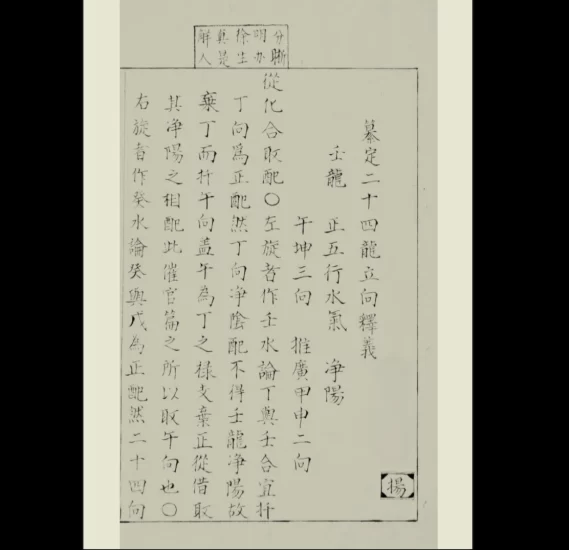 分晰
明办
徐生
真是
解人
纂定二十四龍立向釋義
壬龍 正五行水氣 净陽
午坤三向 推廣甲申二向
從化合取配〇左旋者作壬水論丁與壬合宜扦
丁向爲正配然丁向净陰配不得壬龍净陽故
棄丁而扦午向盖午為丁之祿支棄正從借取
其净陽之相配此催官篇之所以取午向也〇
右旋者作癸水論癸與戊為正配然二十四向
揚